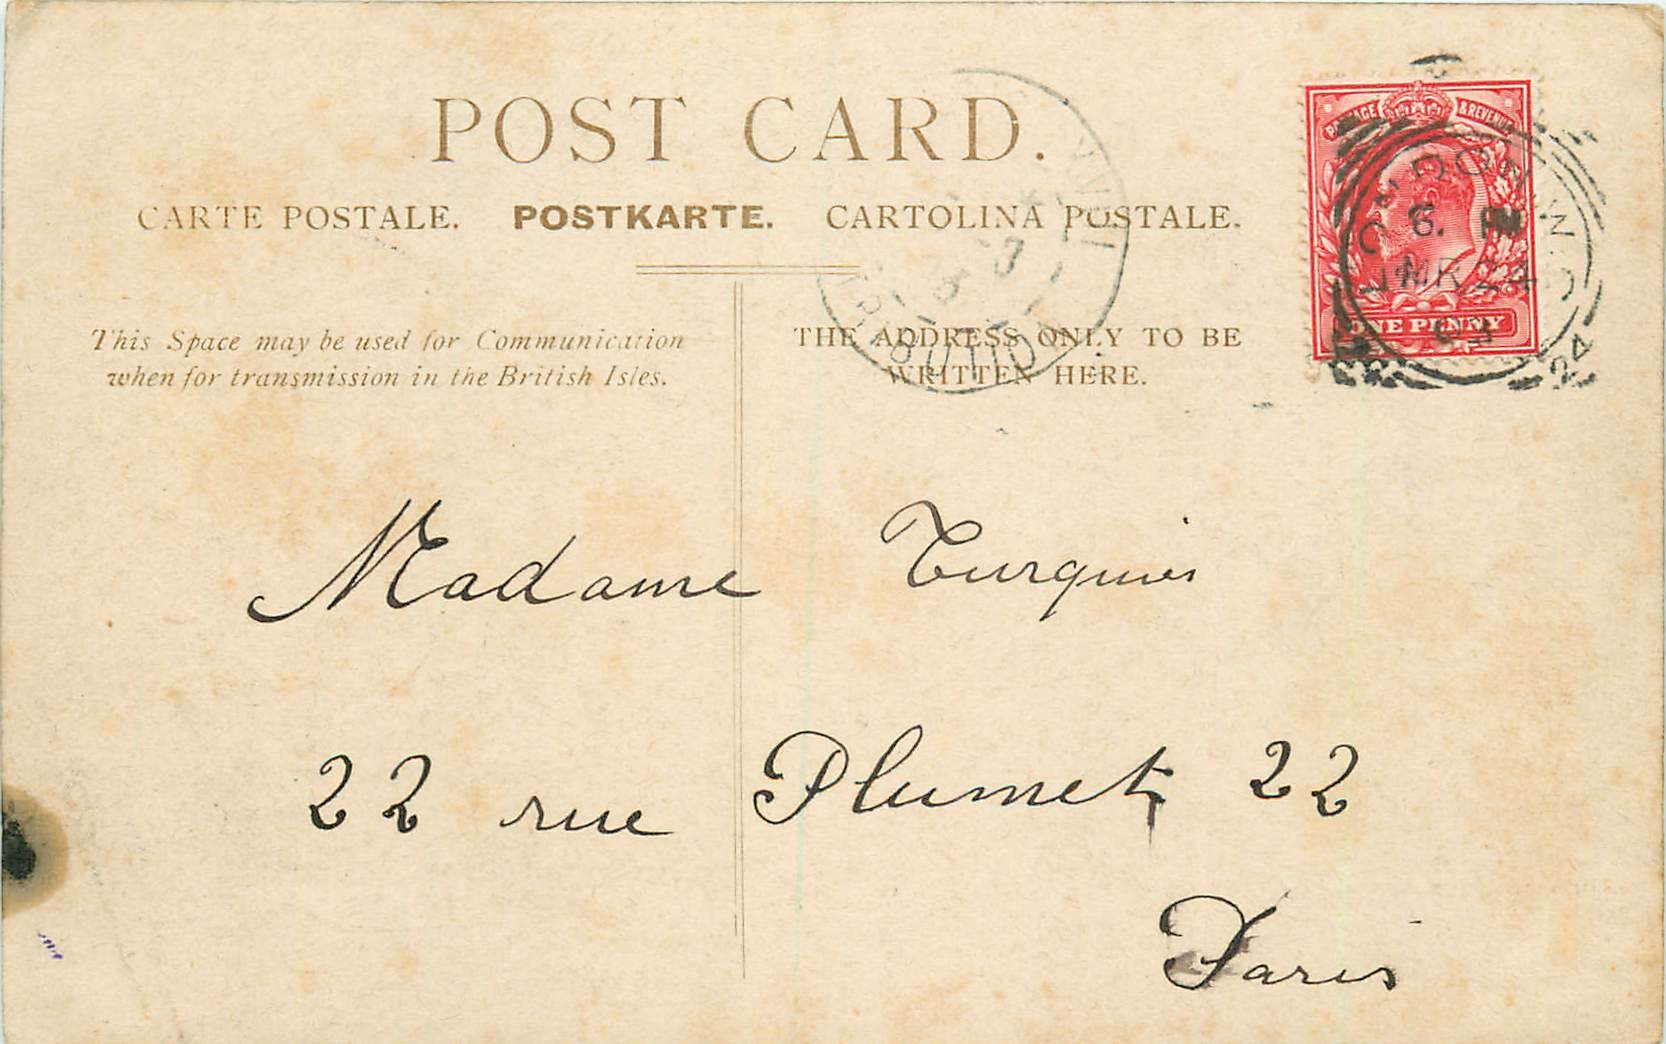 POST CARD.
CARTE POSTALE. POSTKARTE. CARTOLINA POSTALE.
This Space may be used for Communication
when for transmission in the British Isles.
THE ADDRESS ONLY TO BE
WRITTEN HERE.
POSTAGE & REVENUE
ONE PENNY
LONDON.W.C
MR 24
24
Madame Turquies
22 rue Plumet 22
Paris